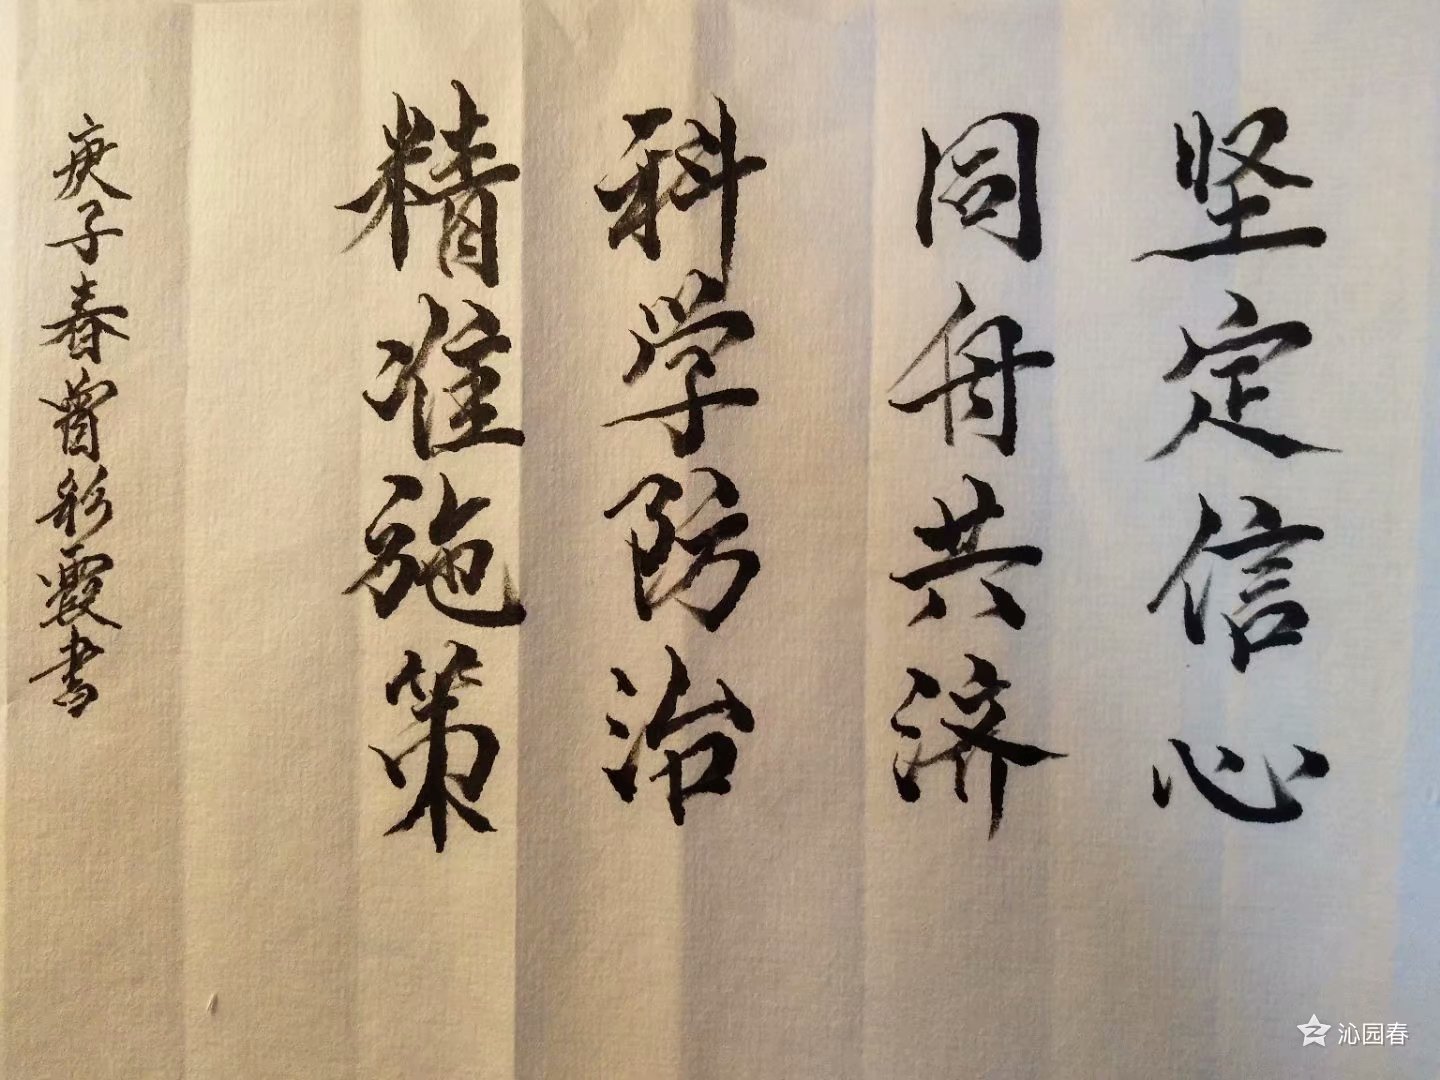 坚定信心
同舟共济
科学防治
精准施策
庚子春曾彩霞书
沁园春